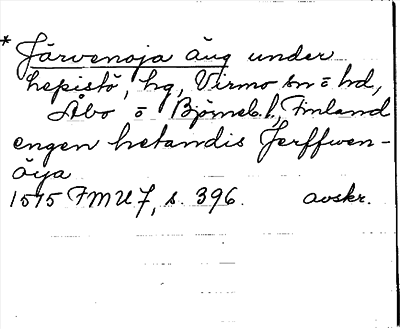 * Järvenoja äng under
hepistö, hg, Virmo sn o hd,
Åbo o Björneb. l, Finland
engen hetandis Jerffwen-
öya
1515 FMU 7, s. 396. avskr.